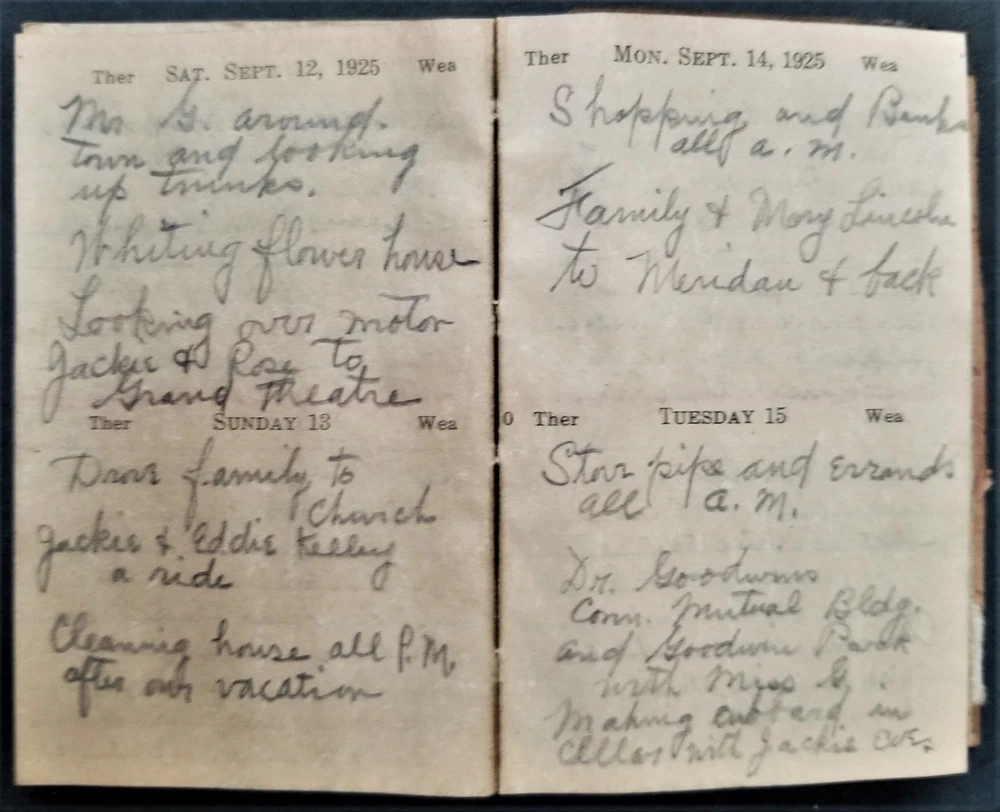 Ther SAT. SEPT. 12, 1925 Wea
Mr G. around.
town and looking
up trunks.
Whiting flower house
Looking over motor
Jackie & Rose to
Grand Theatre
Ther SUNDAY 13 Wea
Drove family to
Church
Jackie & Eddie Kelley
a ride
Cleaning house all P.M.
after our vacation
Ther MON. SEPT. 14, 1925 Wea
Shopping and Banks
all a. m.
Family & Mary Lincoln
to Meridan & back
0 Ther TUESDAY 15 Wea
Stove pipe and errands
all a. m.
Dr. Goodwins
Conn. Mutual Bldg.
and Goodwin Park
with Miss G.
Making cubbard in
cellar with Jackie eve.